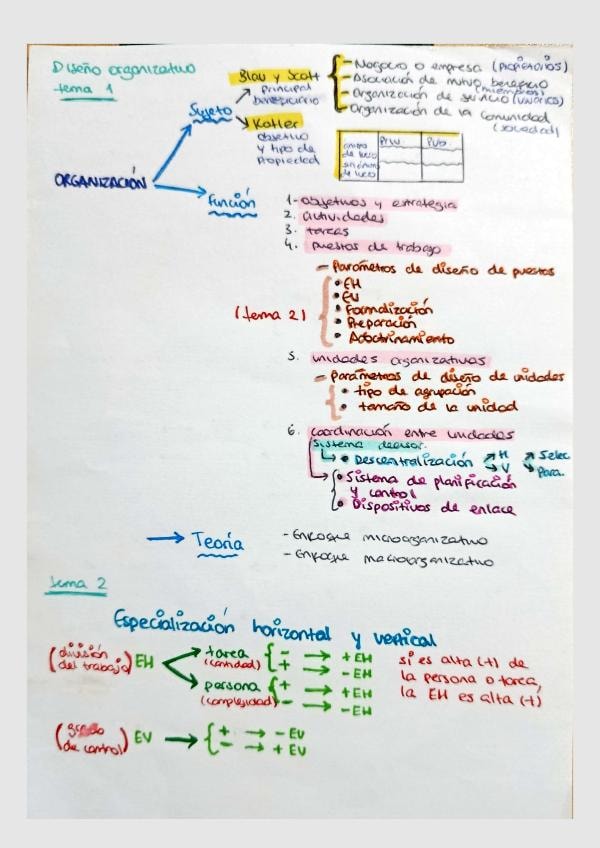 Diseño organizativo
tema 1
ORGANIZACIÓN
Sujeto
Blau y Scott
principal
beneficiario
- Negocio o empresa (propietarios)
- Asociación de mutuo beneficio (miembros)
- Organización de servicio (usuarios)
- Organización de la comunidad (sociedad)
Kotler
objetivo
y tipo de
propiedad
Priv. Pub.
ánimo
de lucro
sin ánimo
de lucro
Función
1- objetivos y estrategia
2. actividades
3. tareas
4. puestos de trabajo
- Parámetros de diseño de puestos
(tema 2)
• EH
• EV
• Formalización
• Preparación
• Adoctrinamiento
5. unidades organizativas
- parámetros de diseño de unidades
• tipo de agrupación
• tamaño de la unidad
6. coordinación entre unidades
sistema decisor.
• Descentralización H Selec.
V Para.
• Sistema de planificación
y control
• Dispositivos de enlace
Teoría
- Enfoque microorganizativo
- Enfoque macroorganizativo
tema 2
Especialización horizontal y vertical
(división del trabajo) EH
tarea (cantidad) - → +EH
+ → -EH
persona (complejidad) + → +EH
- → -EH
si es alta (+) de
la persona o tarea,
la EH es alta (+)
(grado de control) EV → + → -EV
- → +EV